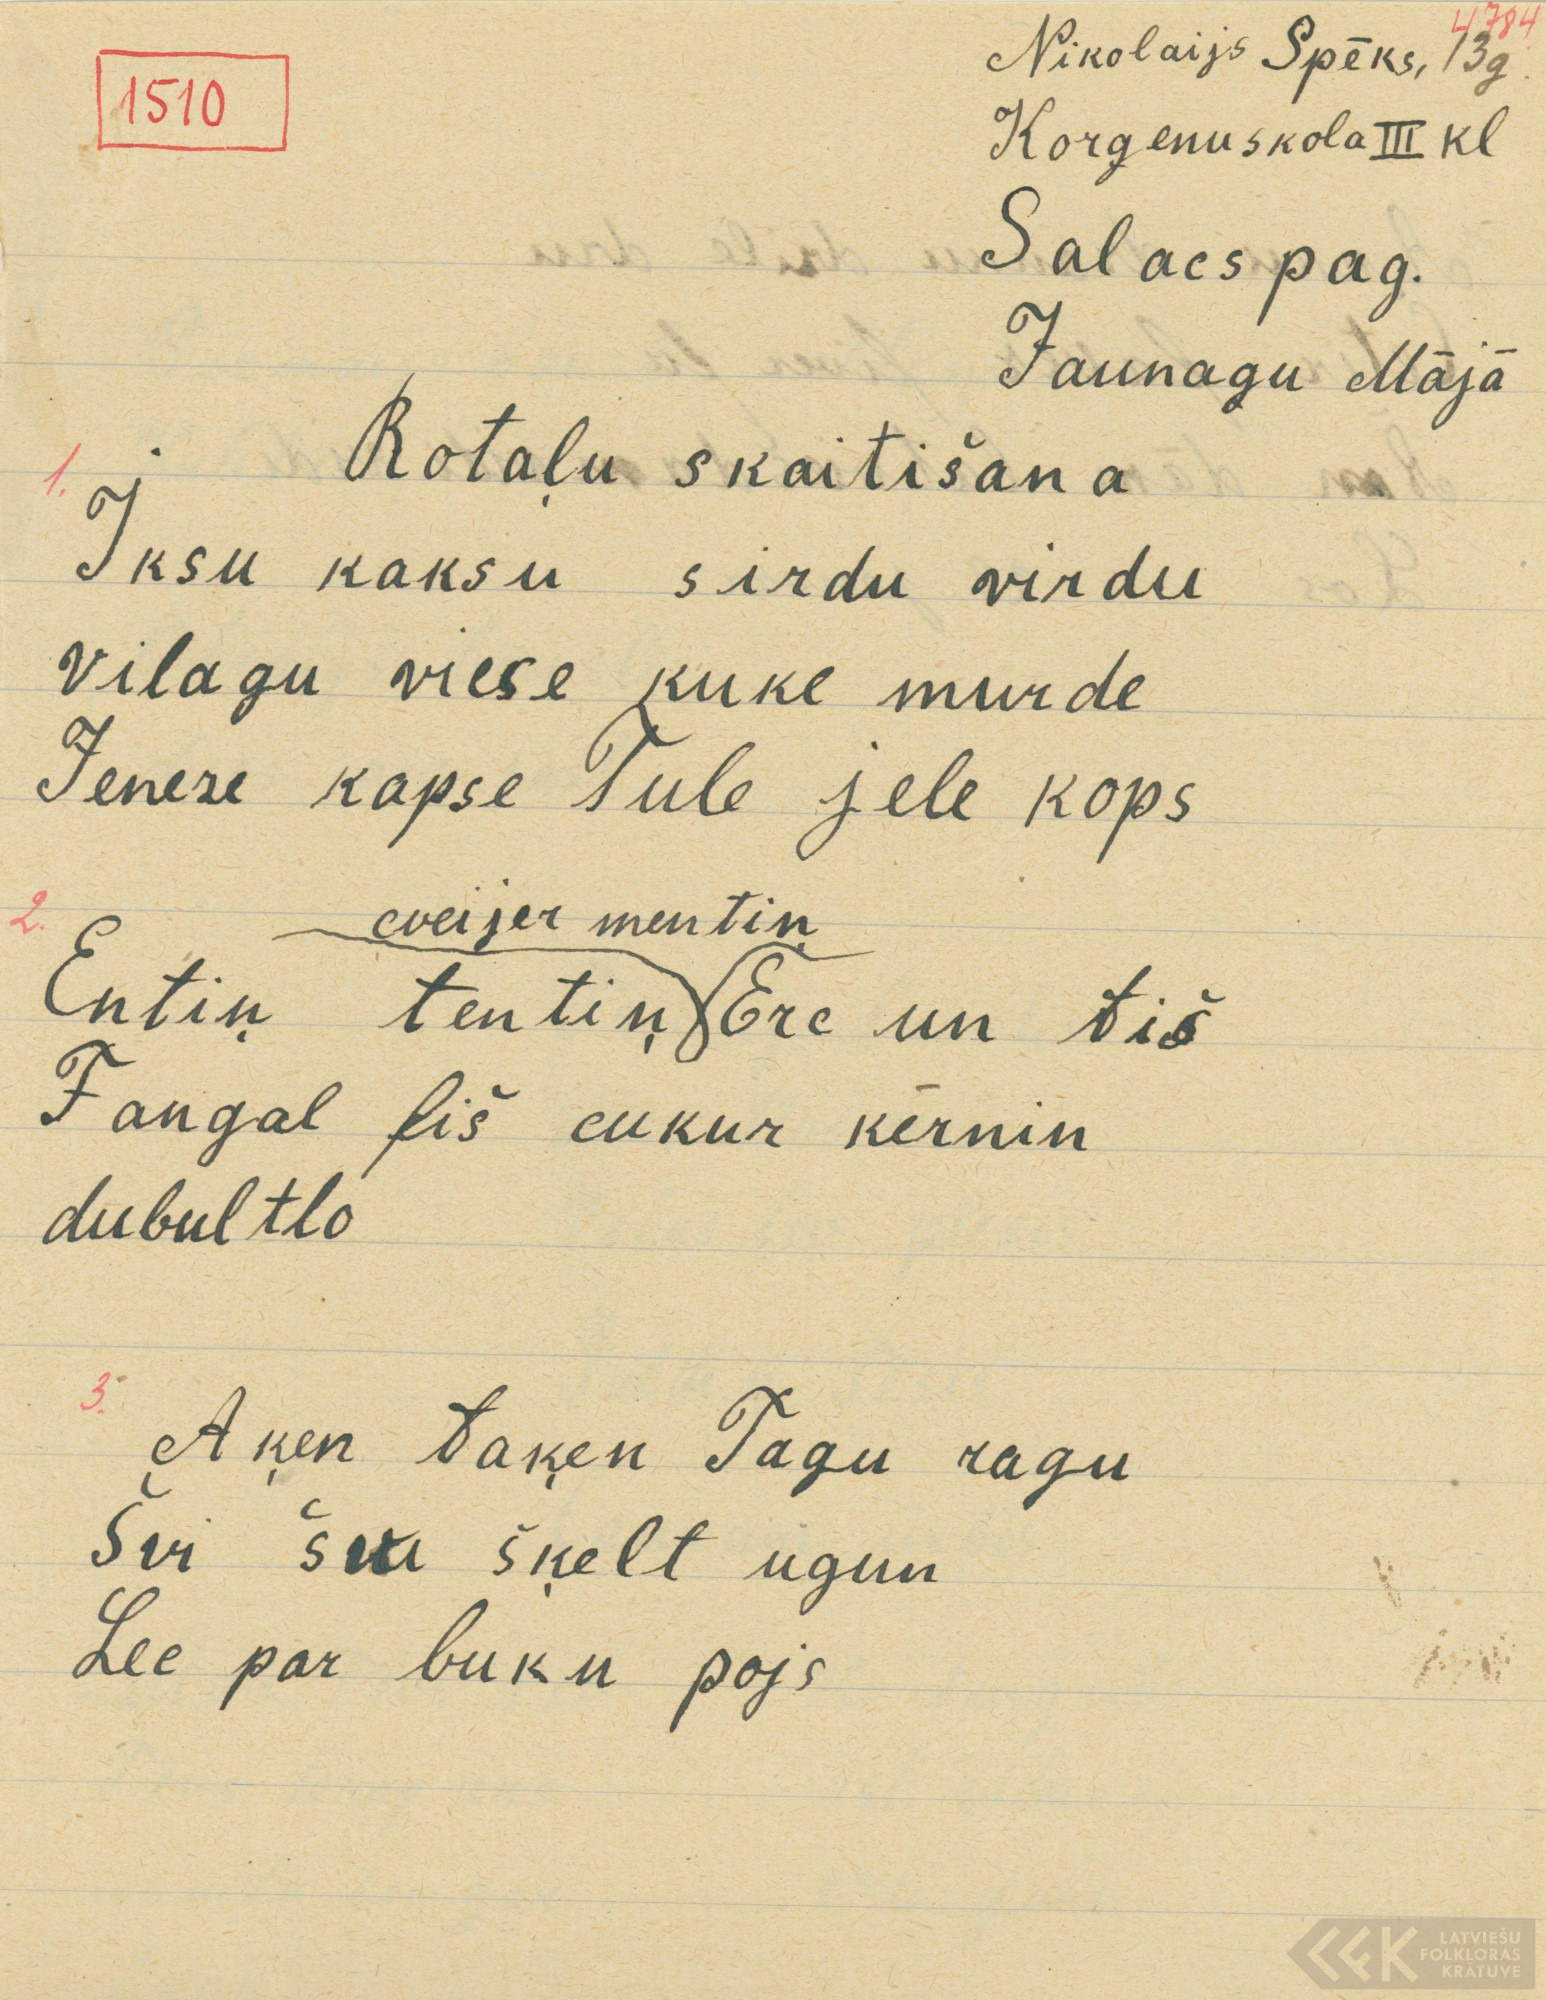 4784
1510
Nikolaijs Spēks, 13g.
Korgenuskola III kl
Salacs pag.
Jaunagu Mājā
Rotaļu skaitišana
1.
Iksu kaksu sirdu virdu
vilagu viese kuke murde
Jenese kapse Tule jele kops
2.
cveijer mentiņ
Entiņ tentiņ Erc un tiš
Fangal fiš cukur kērnin
dubultlo
3.
Aķen taķen Tagu ragu
Švi šu šķelt ugun
Lec par buku pojs
LATVIEŠU
FOLKLORAS
KRĀTUVE